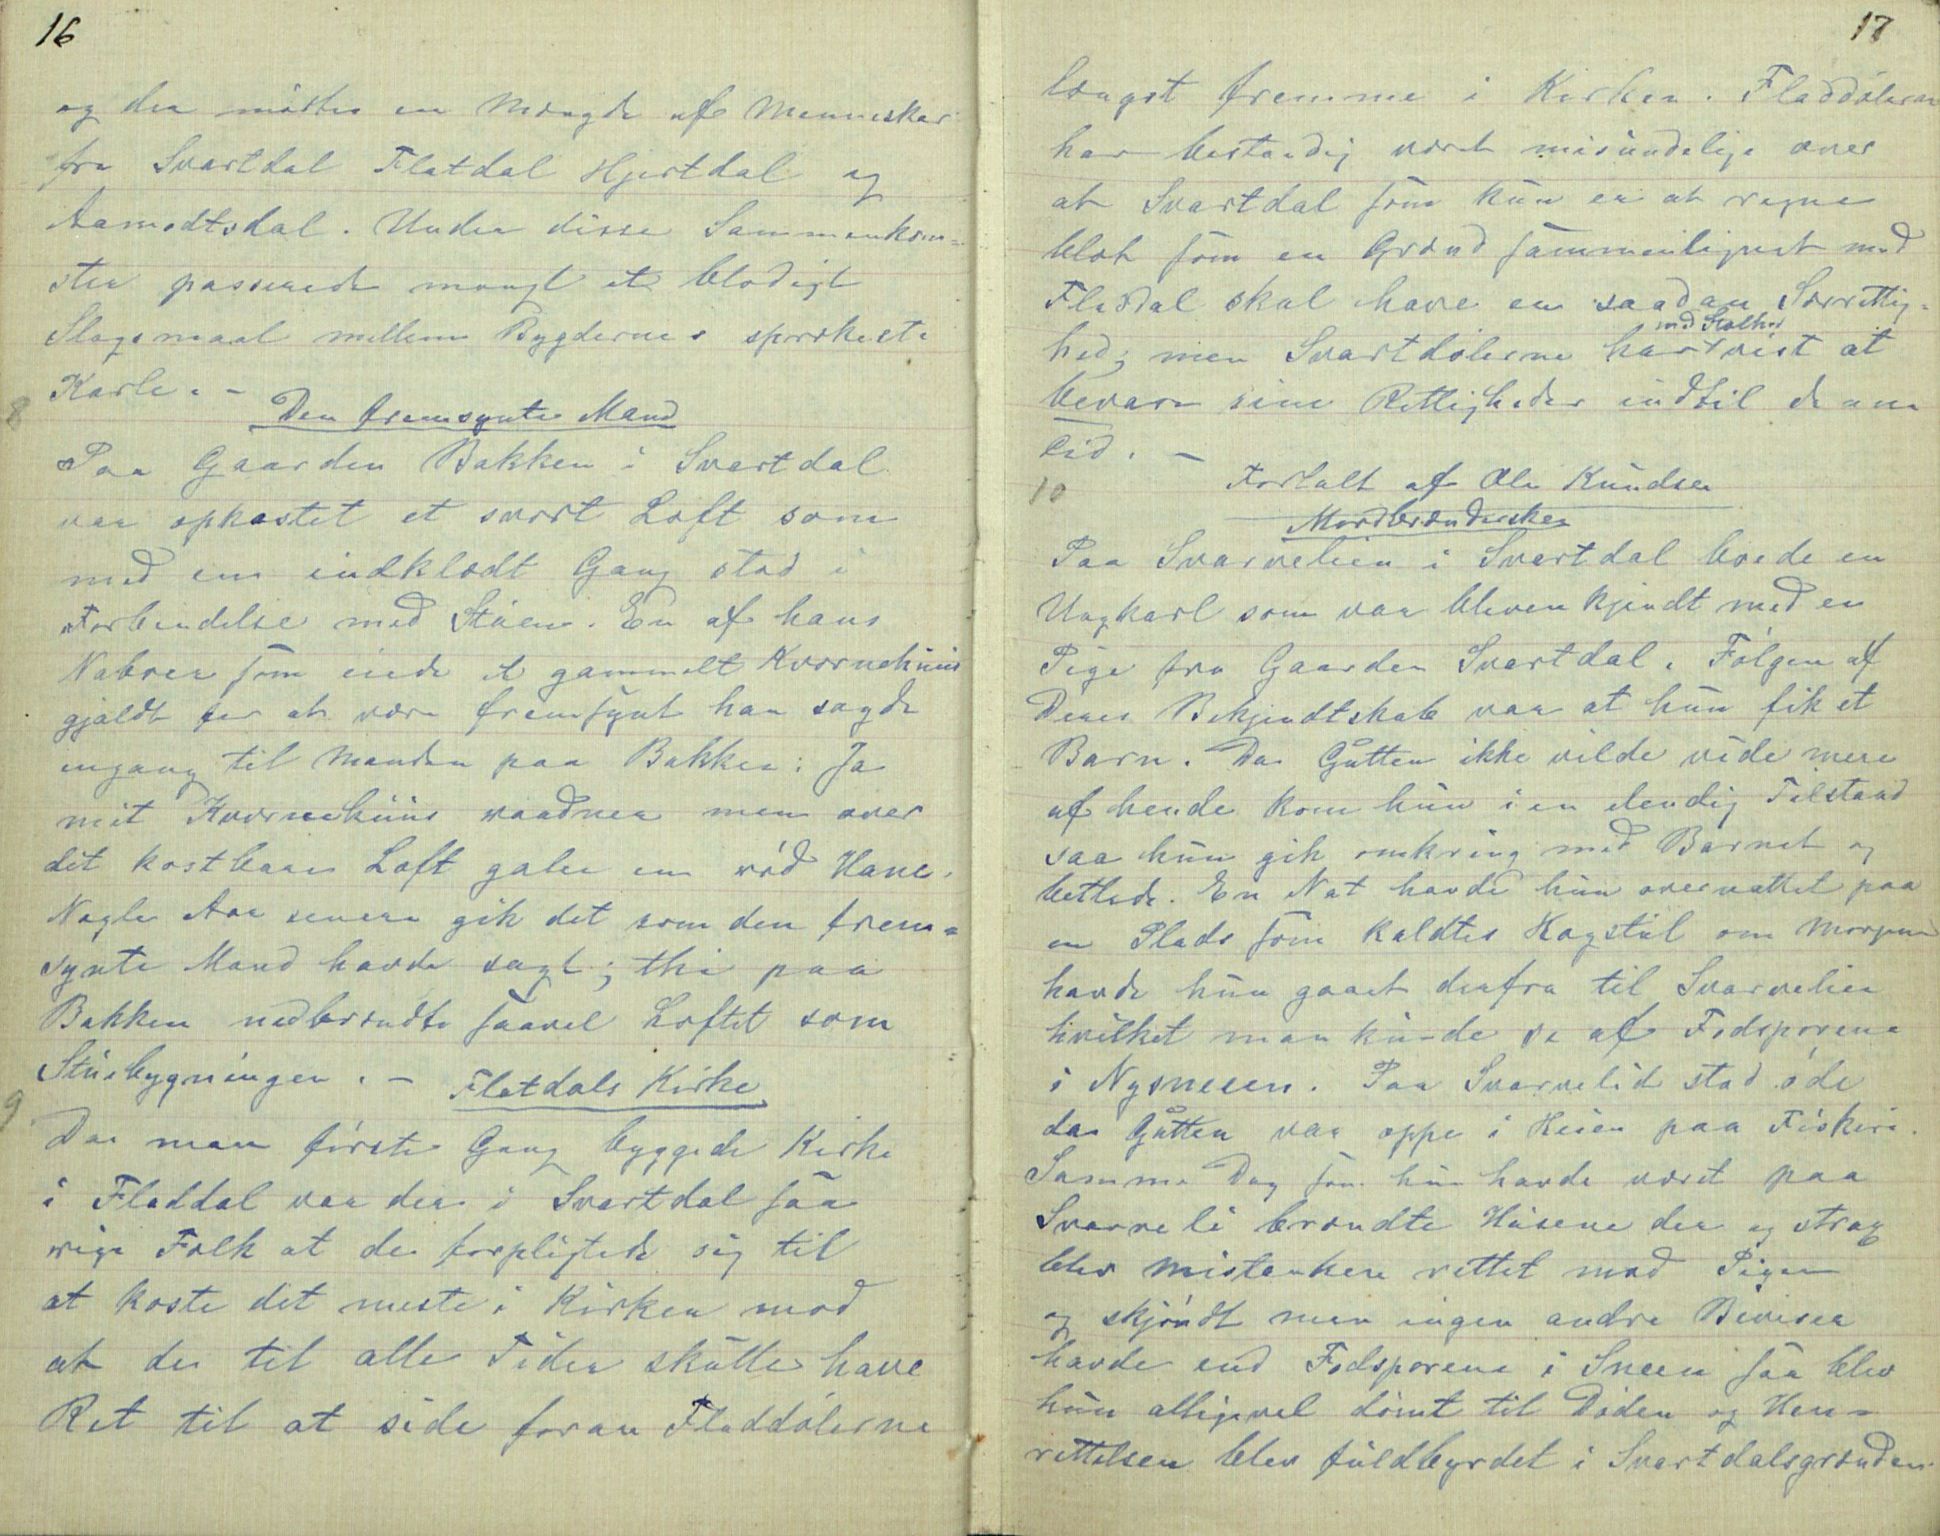 16
og der mödtes en Mængde af Mennesker
fra Svartdal Flatdal Hjertdal og
Aamodtsdal. Under disse Sammenkom=
ster passerede mangt et blodigt
Slagsmaal mellem Bygdernes sprækeste
Karle. -
8
Den fremsynte Mand
Paa Gaarden Bakken i Svartdal
var opkastet et svært Loft som
med en indklædt Gang stod i
Forbindelse med Stuen. En af hans
Naboer som eiede et gammelt Kværnehuus
gjaldt for at være fremsynt han sagde
engang til Manden paa Bakken: Ja
mit Kværnehuus raadner men over
det kostbare Loft galer en röd Hane.
Nogle Aar senere gik det som den frem=
synte Mand havde sagt; thi paa
Bakken nedbrændte saavel Loftet som
Stuebygningen. -
9
Flatdals Kirke
Da man förste Gang byggede Kirke
i Fladdal var der i Svartdal saa
rige Folk at de forpligtede sig til
at koste det meste i Kirken mod
at de til alle Tider skulle have
Ret til at side foran Fladdölerne
17
længst fremme i Kirken. Fladdölerne
har bestandig været misundelige over
at Svartdal som kun er at regne
blot som en Grænd sammenlignet med
Fladdal skal have en saadan Særrettig=
hed; men Svartdölerne har vist at
med Stolthed
bevare sine Rettigheder indtil denne
Tid. -
10
Fortalt af Ole Knudsen
Mordbrændersken
Paa Svarvelien i Svartdal boede en
Ungkarl som var bleven kjendt med en
Pige fra Gaarden Svartdal. Fölgen af
Deres Bekjendtskab var at hun fik et
Barn. Da Gutten ikke vilde vide mere
af hende kom hun i en elendig Tilstand
saa hun gik omkring med Barnet og
betlede. En Nat havde hun overnattet paa
en Plads som kaldtes Hogstul om Morgenen
havde hun gaaet derfra til Svarvelien
hvilket man kunde se af Fodsporene
i Nysneen. Paa Svarvelid stod öde
da Gutten var oppe i Heien paa Fiskeri.
Samme Dag som hun havde været paa
Svarveli brændte Husene der og strax
blev Mistanken rettet mod Pigen
og skjöndt man ingen andre Beviser
havde end Fodsporene i Sneen saa blev
hun alligevel dömt til Döden og Hen=
rettelsen blev fuldbyrdet i Svartdalsgrænden.